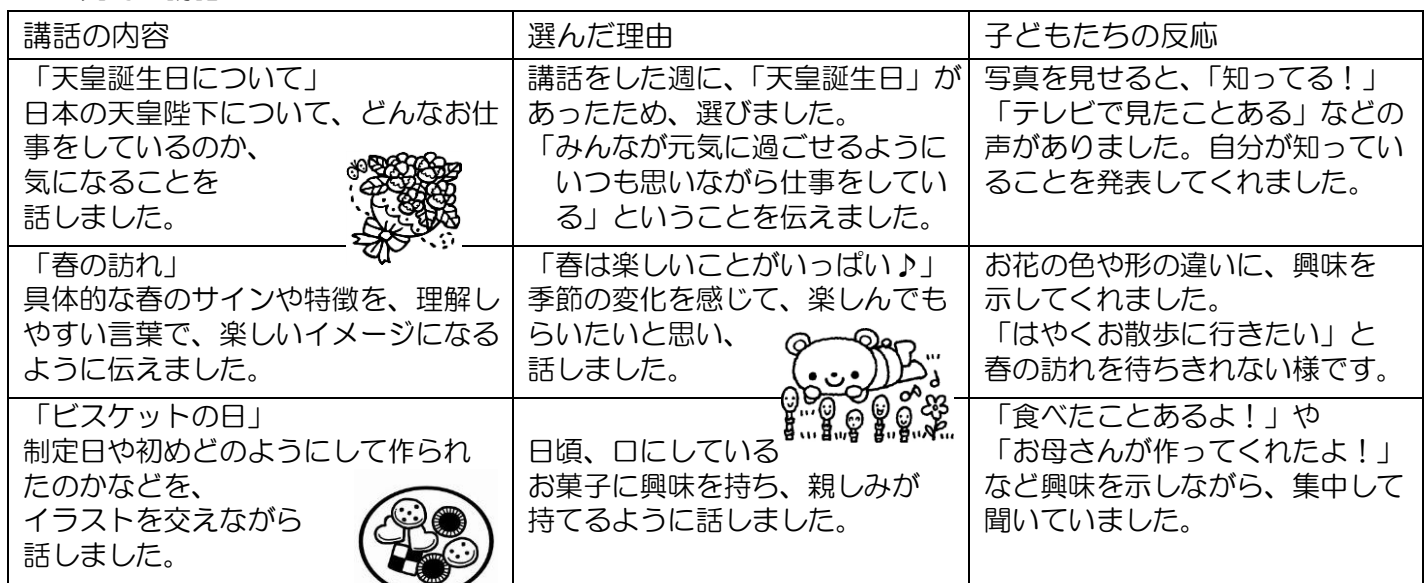 講話の内容
選んだ理由
子どもたちの反応
「天皇誕生日について」
日本の天皇陛下について、どんなお仕
事をしているのか、
気になることを
話しました。
講話をした週に、「天皇誕生日」が
あったため、選びました。
「みんなが元気に過ごせるように
いつも思いながら仕事をしてい
る」ということを伝えました。
写真を見せると、「知ってる！」
「テレビで見たことある」などの
声がありました。自分が知ってい
ることを発表してくれました。
「春の訪れ」
具体的な春のサインや特徴を、理解し
やすい言葉で、楽しいイメージになる
ように伝えました。
「春は楽しいことがいっぱい♪」
季節の変化を感じて、楽しんでも
らいたいと思い、
話しました。
お花の色や形の違いに、興味を
示してくれました。
「はやくお散歩に行きたい」と
春の訪れを待ちきれない様です。
「ビスケットの日」
制定日や初めどのようにして作られ
たのかなどを、
イラストを交えながら
話しました。
日頃、口にしている
お菓子に興味を持ち、親しみが
持てるように話しました。
「食べたことあるよ！」や
「お母さんが作ってくれたよ！」
など興味を示しながら、集中して
聞いていました。